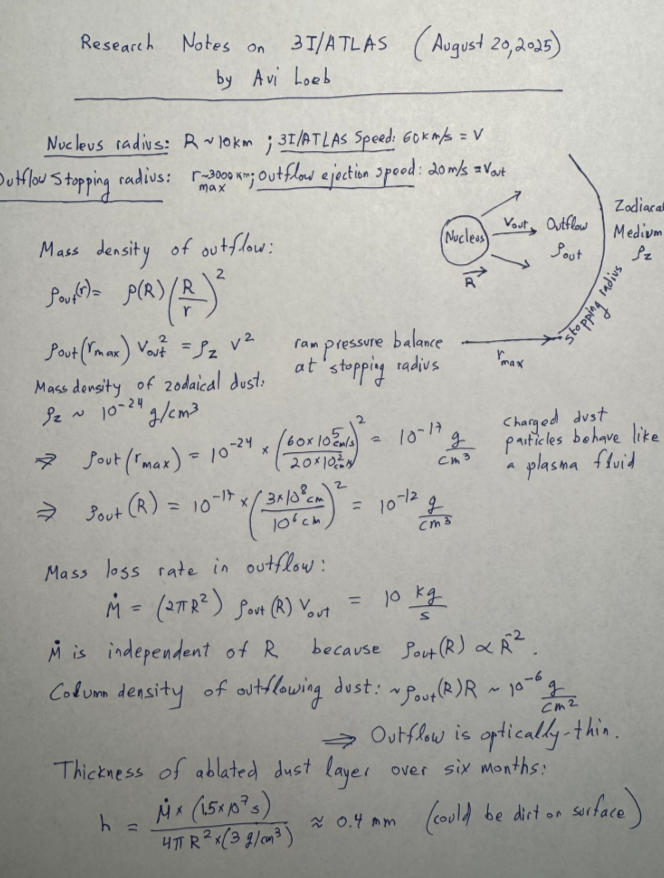 Research Notes on 3I/ATLAS (August 20, 2025)
by Avi Loeb
Nucleus radius: R ~ 10km ; 3I/ATLAS Speed: 60km/s = V
Outflow Stopping radius: r_max ~ 3000 km; Outflow ejection speed: 20 m/s = Vout
Nucleus
R
Vout
Outflow
ρout
Zodiacal
Medium
ρz
stopping radius
r_max
Mass density of outflow:
ρout(r) = ρ(R) (R/r)²
ρout(r_max) Vout² = ρz V² ram pressure balance
at stopping radius
Mass density of zodaical dust:
ρz ~ 10⁻²⁴ g/cm³
⇒ ρout(r_max) = 10⁻²⁴ × (60×10⁵ cm/s / 20×10² cm/s)² = 10⁻¹⁷ g/cm³
charged dust
particles behave like
a plasma fluid
⇒ ρout(R) = 10⁻¹⁷ × (3×10⁸ cm / 10⁶ cm)² = 10⁻¹² g/cm³
Mass loss rate in outflow:
Ṁ = (2πR²) ρout(R) Vout = 10 kg/s
Ṁ is independent of R because ρout(R) ∝ R⁻².
Column density of outflowing dust: ~ρout(R)R ~ 10⁻⁶ g/cm²
⇒ Outflow is optically-thin.
Thickness of ablated dust layer over six months:
h = Ṁ × (1.5×10⁷ s) / 4πR²×(3 g/cm³) ≈ 0.4 mm (could be dirt on surface)